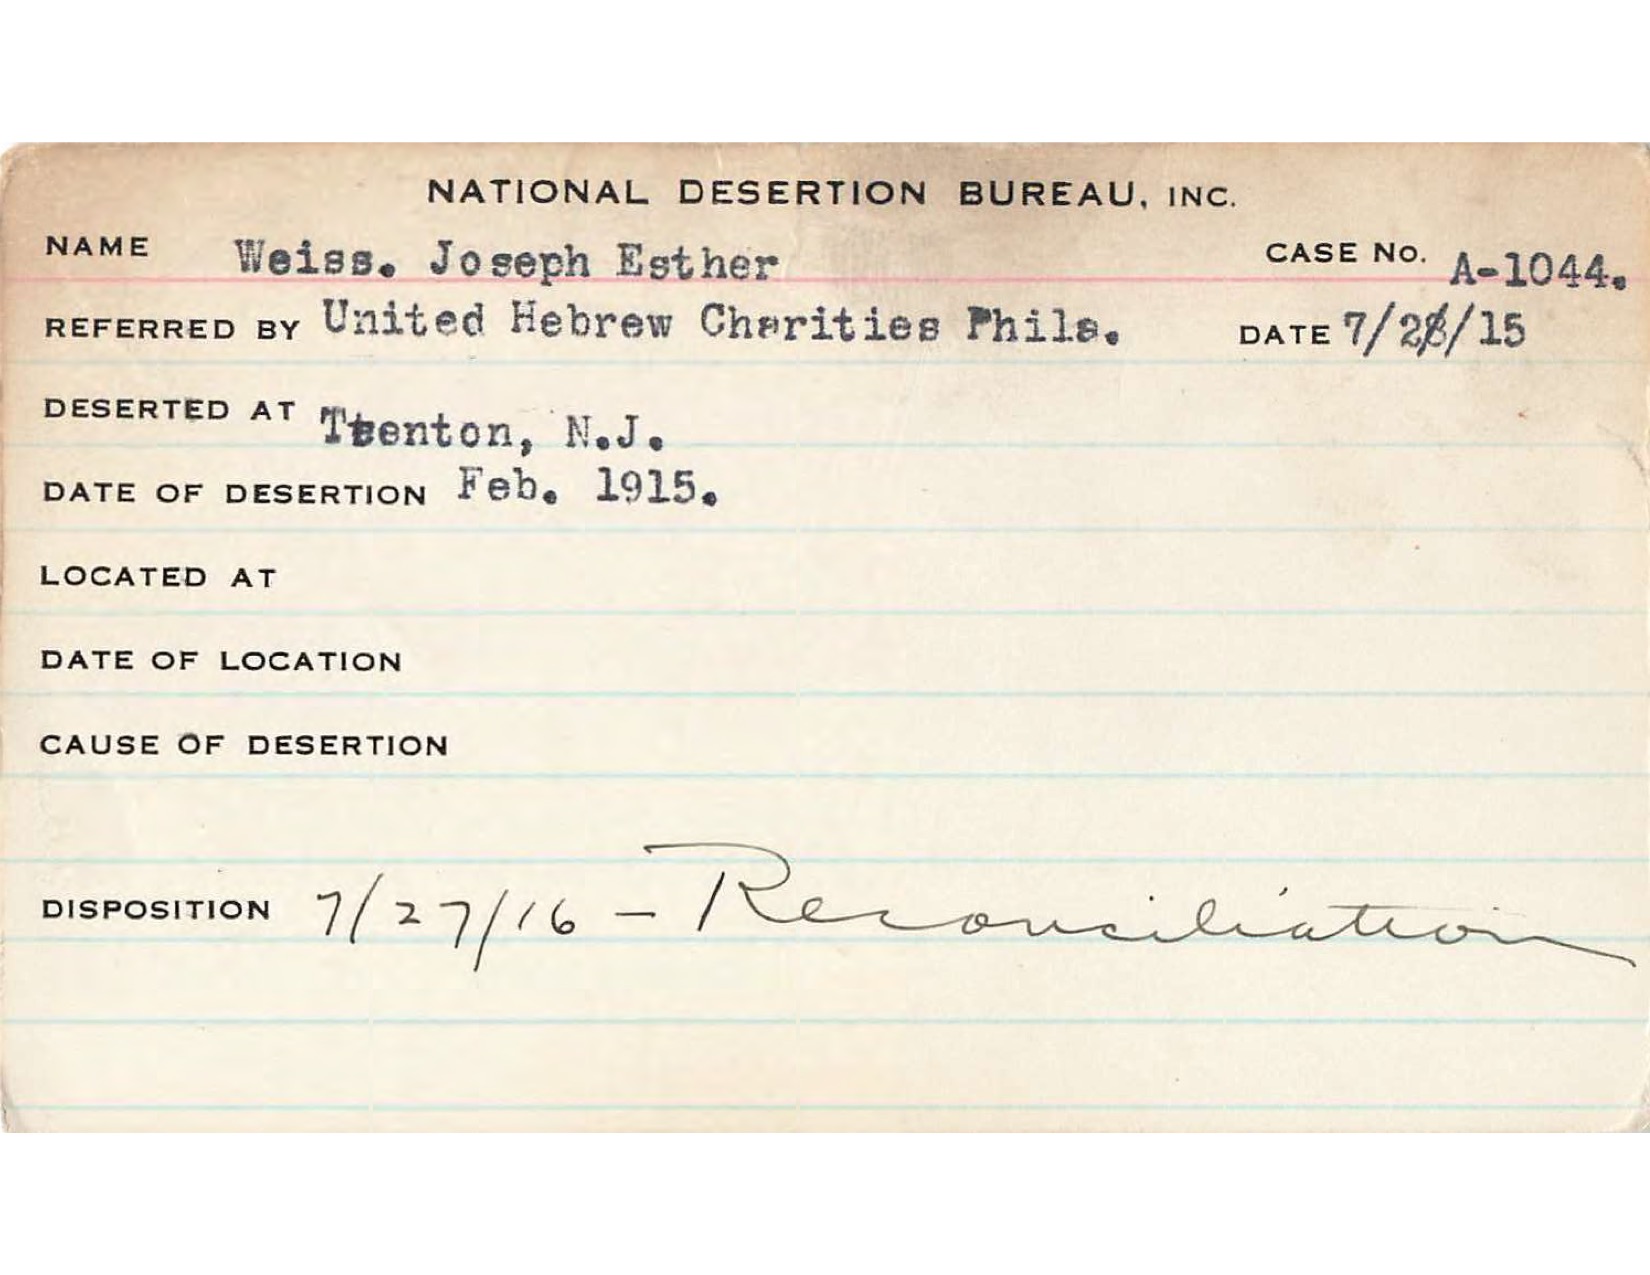 NATIONAL DESERTION BUREAU, INC.
NAME Weiss. Joseph Esther CASE NO. A-1044.
REFERRED BY United Hebrew Charities Phila. DATE 7/28/15
DESERTED AT Trenton, N.J.
DATE OF DESERTION Feb. 1915.
LOCATED AT
DATE OF LOCATION
CAUSE OF DESERTION
DISPOSITION 7/27/16 – Reconciliation